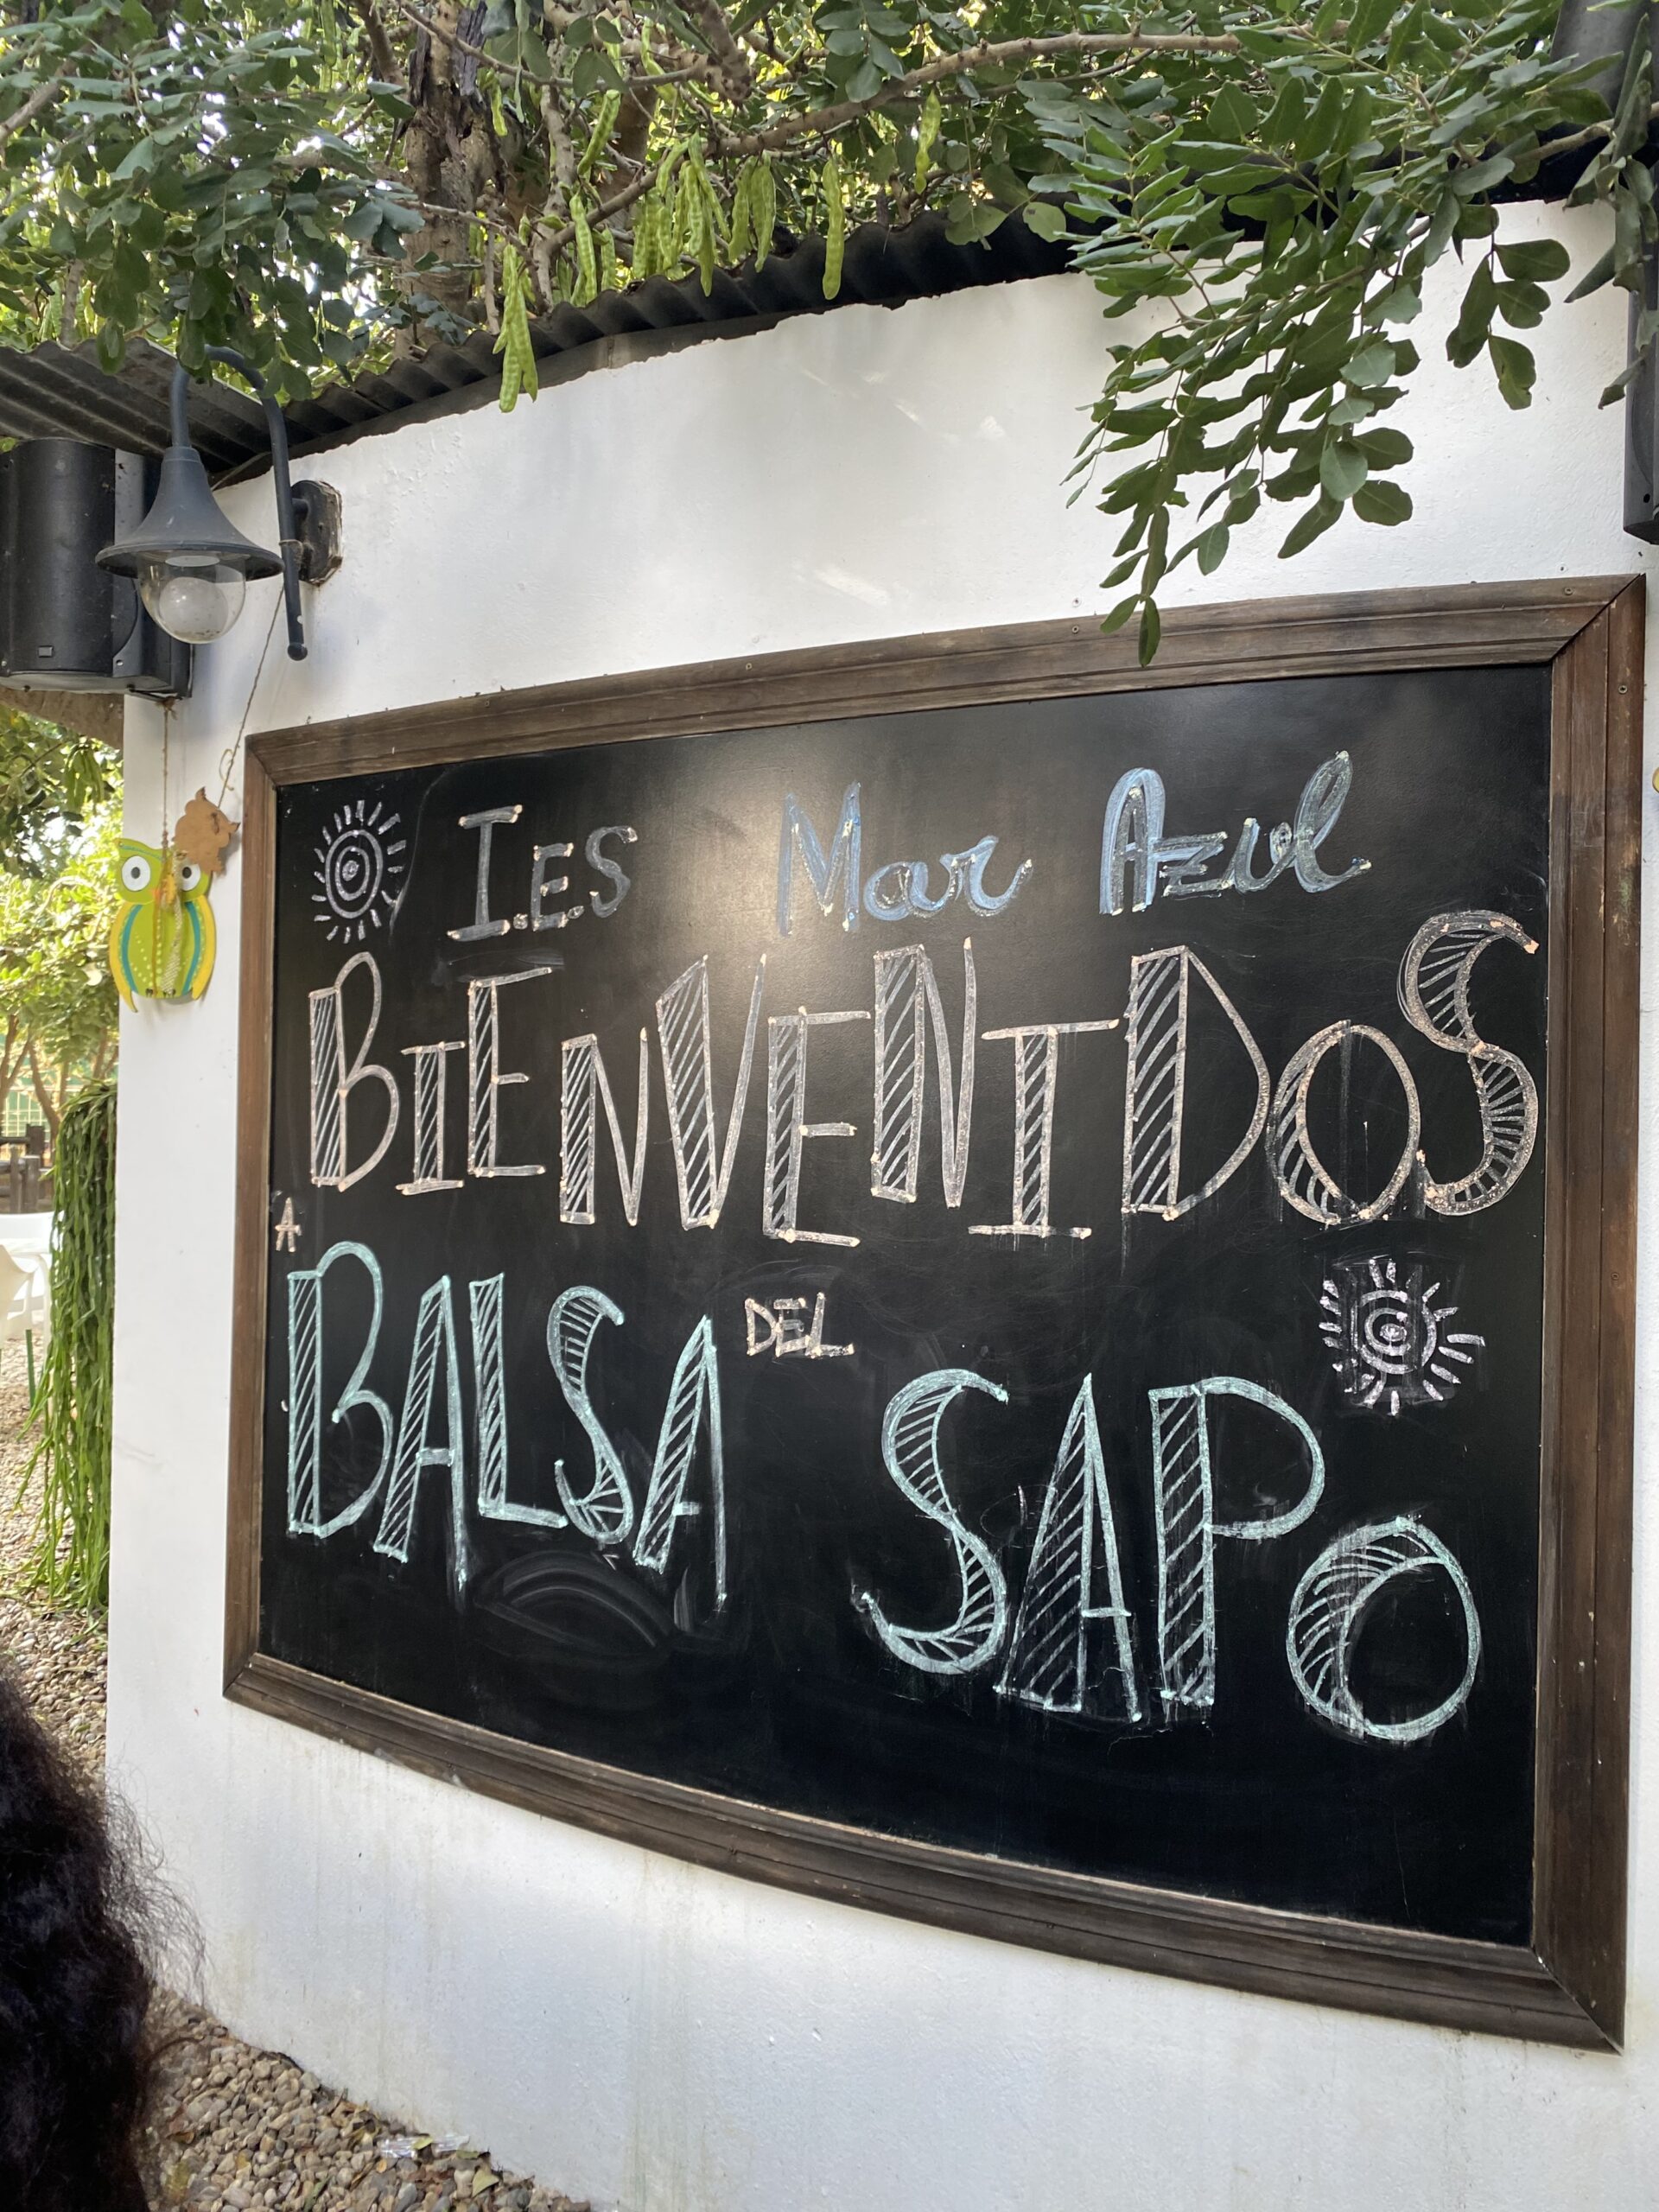 I.E.S Mar Azul
BIENVENIDOS
A
BALSA DEL SAPO